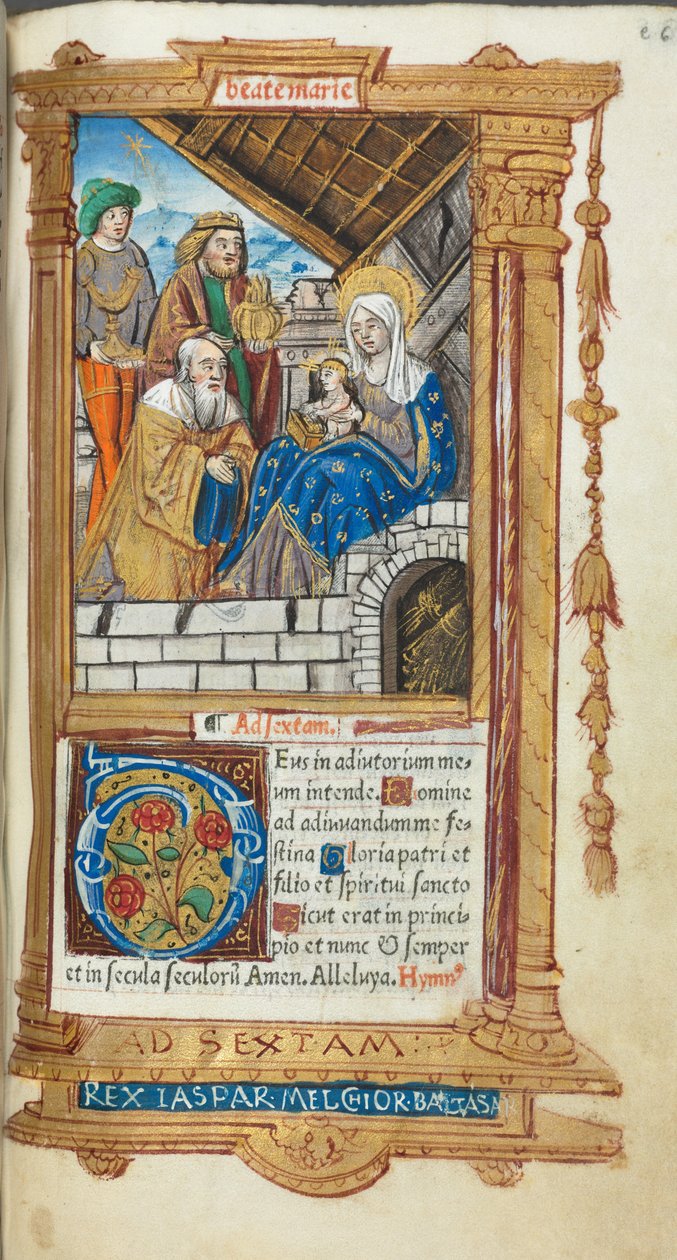 e 6
beate marie
¶ Ad sextam.
Deus in adiutorium me⸗
um intende. Domine
ad adiuvandum me fe⸗
ſtina Gloria patri et
filio et ſpiritui ſancto
Sicut erat in princi⸗
pio et nunc & ſemper
et in ſecula ſeculorū Amen. Alleluya. Hymnꝰ
AD SEXTAM:
REX IASPAR·MELCHIOR·BALTASAR